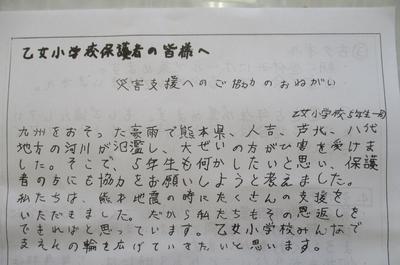 乙女小学校保護者の皆様へ
災害支援へのご協力のおねがい
乙女小学校5年生一同
九州をおそった豪雨で熊本県、人吉、芦北、八代
地方の河川が氾濫し、大ぜいの方がひ害を受けま
した。そこで、5年生も何かしたいと思い、保護
者の方にも協力をお願いしようと考えました。
私たちは、熊本地震の時にたくさんの支援を
いただきました。だから私たちもその恩返しを
できればと思っています。乙女小学校みんなで
支えんの輪を広げていきたいと思います。